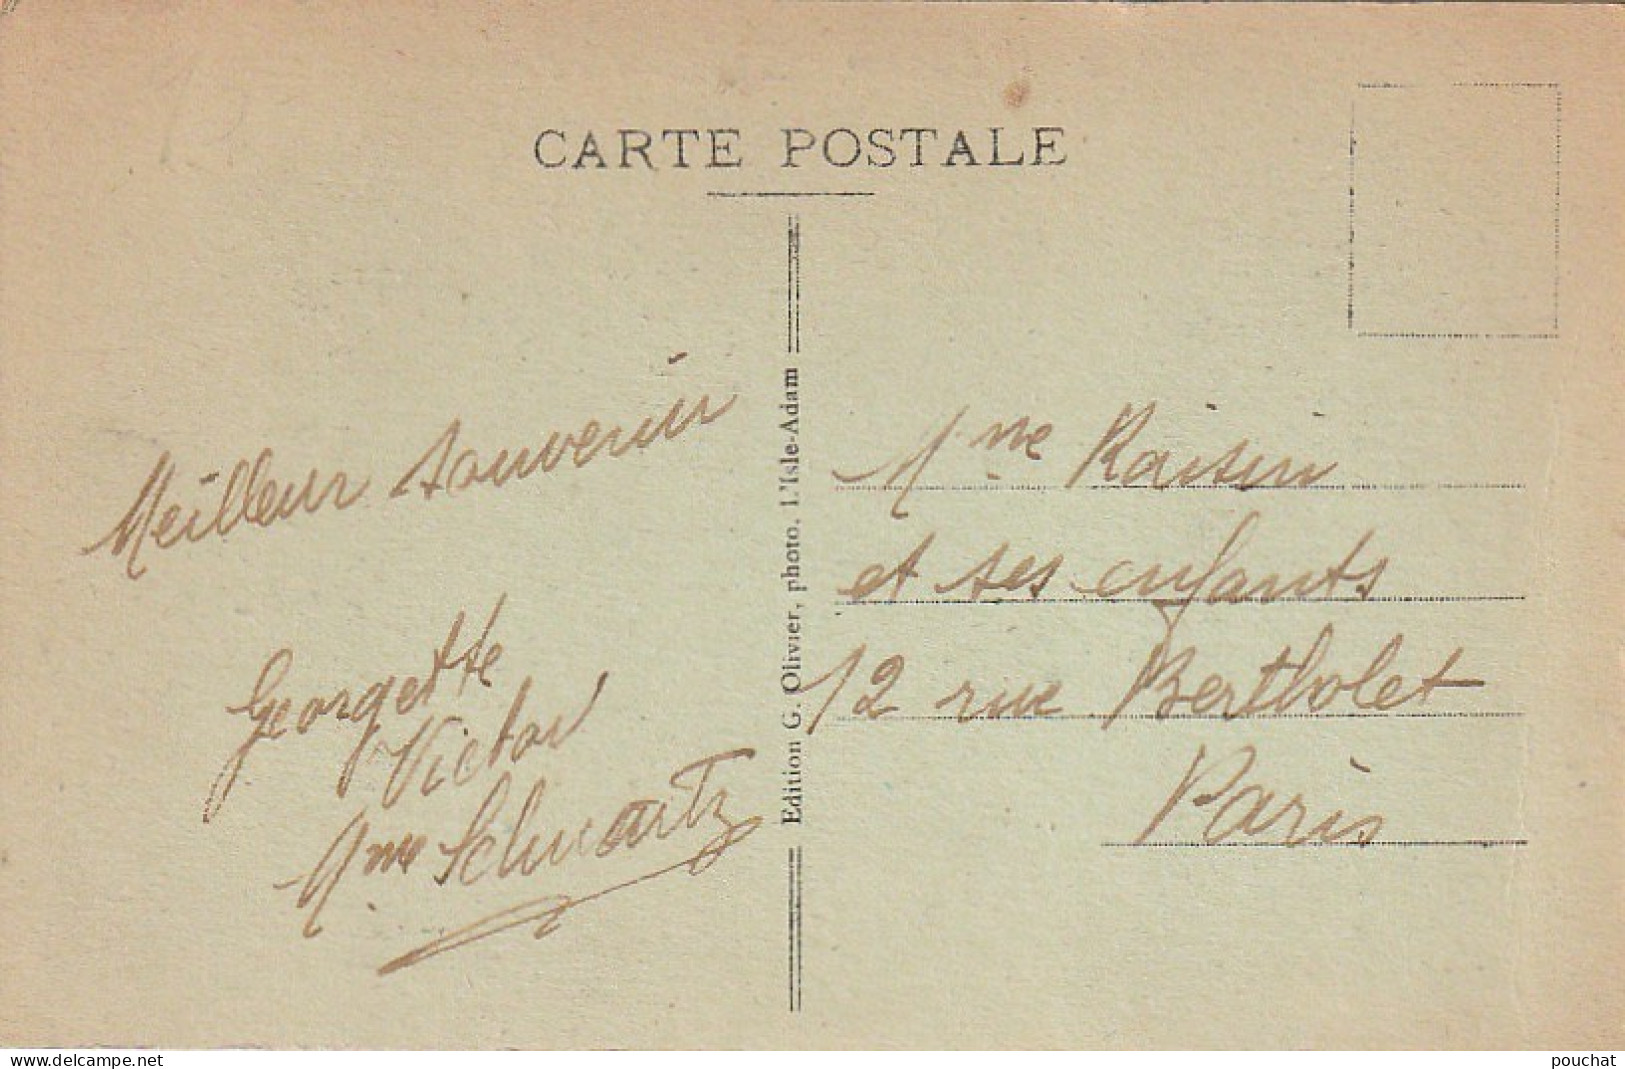 CARTE POSTALE
Meilleur souvenir
Georgette
Victor
Mme Schwartz
Edition G. Olivier, photo. L'Isle-Adam
Mme Raisin
et ses enfants
12 rue Bertholet
Paris
www.delcampe.net
pouchat